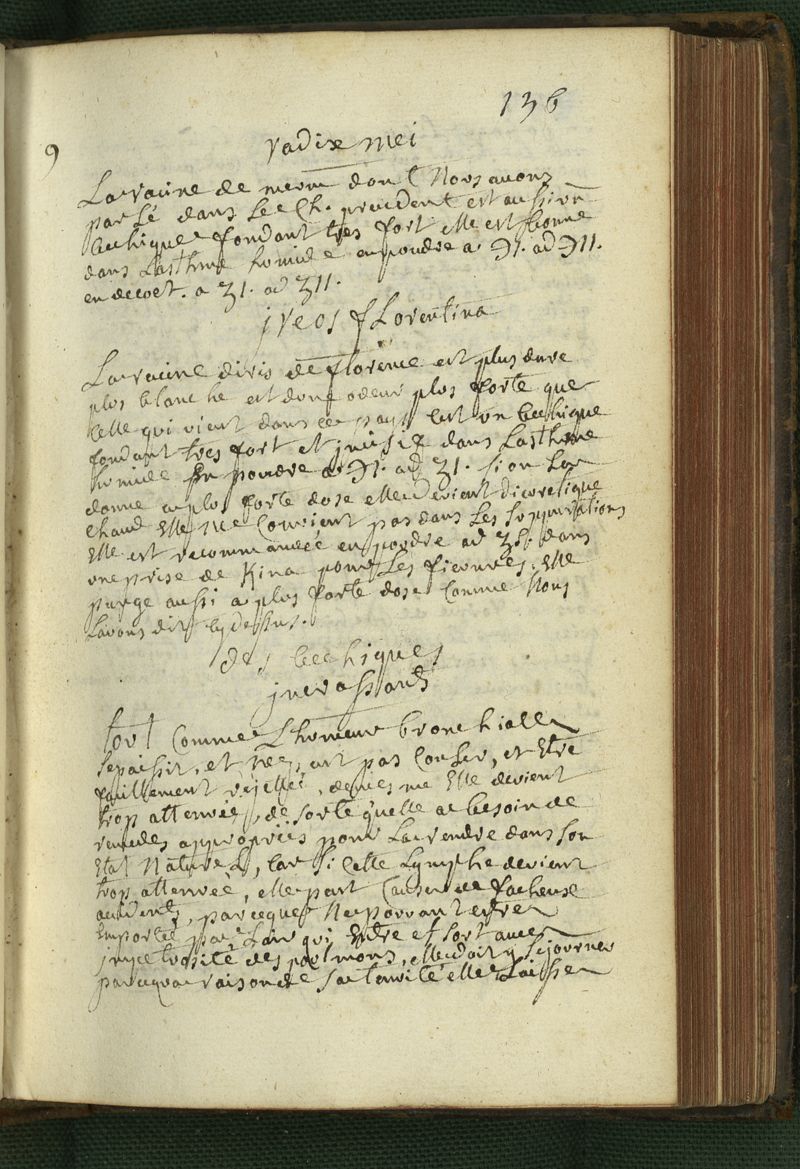 136
9
radix mei
La racine de meum dont Nous avons
parlé dans Le Ch. precedent est aussi un
bechique fondant tres fort elle est bonne
dans Lasthme humide en poudre a ℈1. ad ℈11.
en decoct. a ʒ1. ad ʒ11.
jreos fLorentina
La racine diris de florence est plus dure
plus blanche et dune odeur plus forte que
celle qui vient dans ce pays cest un bechique
fondant tres fort et jncisif dans Lasthme
humide En poudre a ℈1. ad ʒ1. si on La
donne a plus forte dose elle devient diuretique
chaud Elle Ne Convient pas dans Les suppurations
Elle est recommandée en poudre ad ʒß. dans
une prise de Kina pour Les fievres. Elle
purge aussi a plus forte dose Comme Nous
Lavons dit cy dessus.
des bechiques
jncrassants
tout Comme L'humeur bronchialle
sepaissit, et pas et Etre
facillement rejettée, de mesme Elle devient
trop attenuée, de sorte quelle a besoin de
remedes appropriés pour La rendre dans son
Etat Naturel, Car si Cette Lymphe devient
trop attenuée, elle peut Causer de facheux
accidents, parceque Ne pouvant etre
Emportée par L'air qui Entre et sort avec
jmpetuosité des poulmons, elle doit y sejourner
parcequa raison de sa tenuité elle Laisse